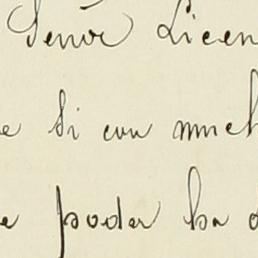 Señor Licen
e Si con much
e poder ha d